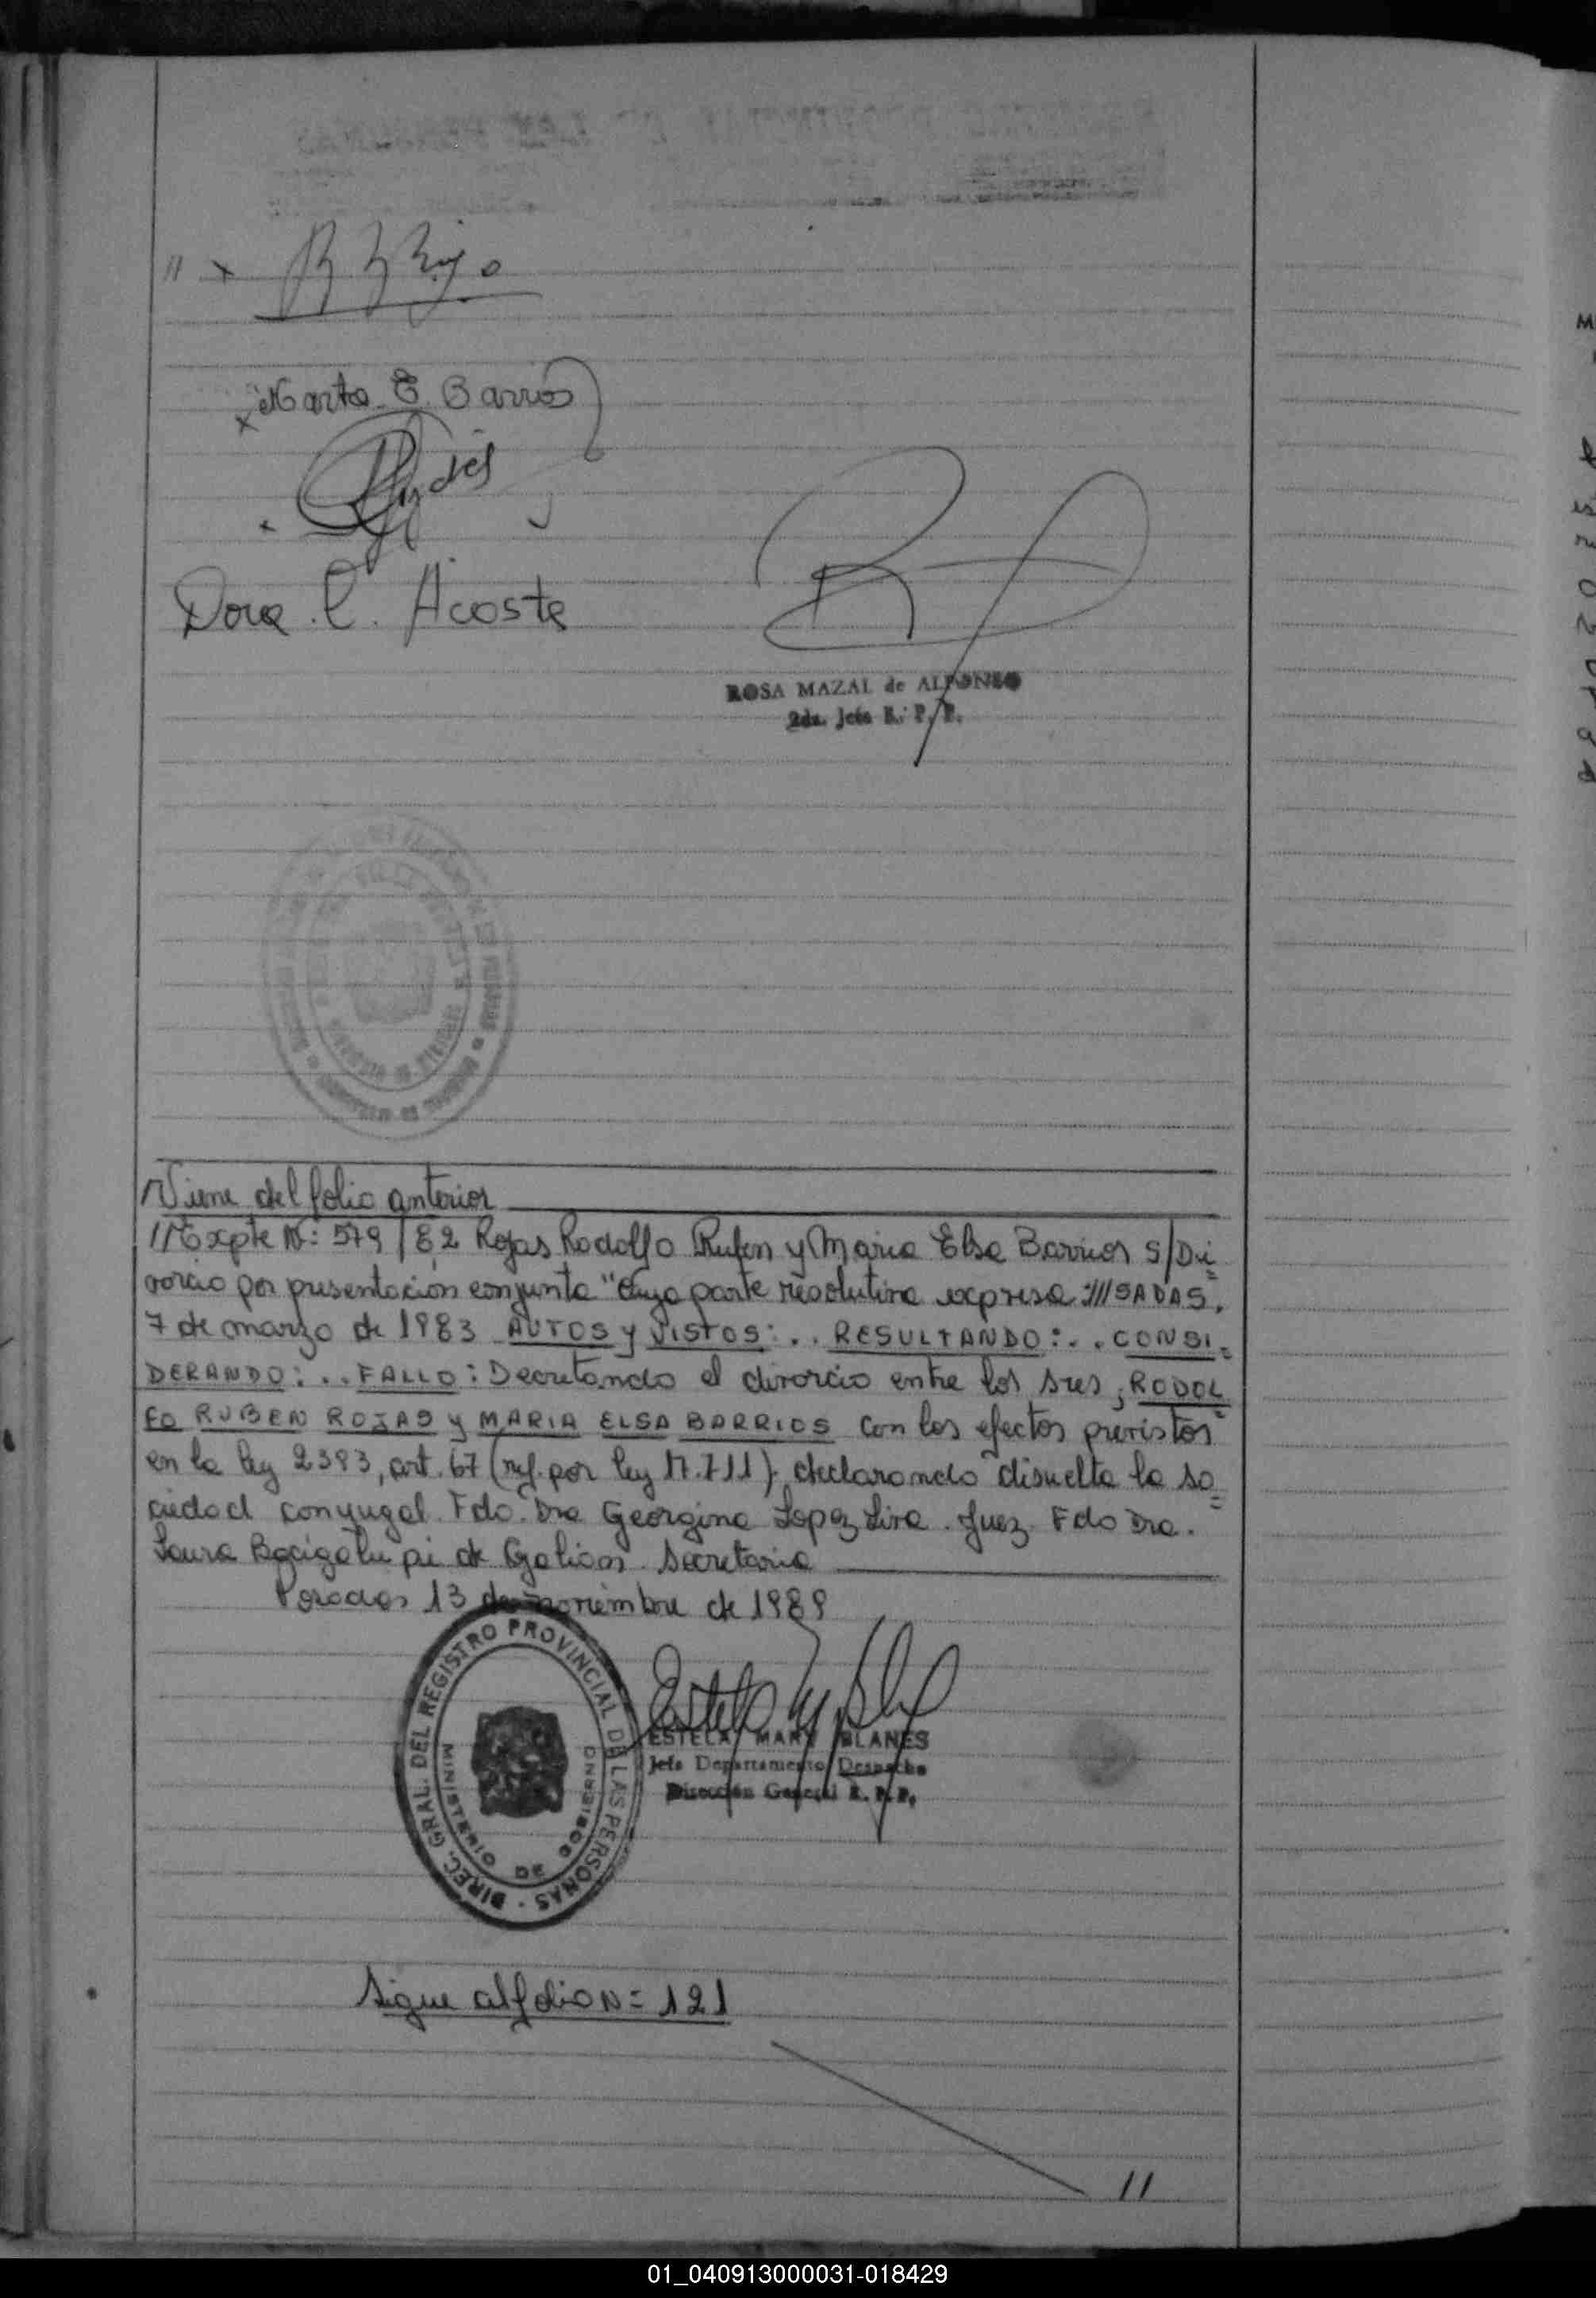 11 x
x Marta E. Barrios
x
Dora C. Acosta
ROSA MAZAL de ALFONSO
2da. Jefa R. P. P.
Viene del folio anterior
//Expte N: 579/82 Rojas Rodolfo Ruben y Maria Elsa Barrios S/Di=
vorcio por presentacion conjunta "Cuya parte resolutiva expresa ///SADAS,
7 de marzo de 1983 AUTOS y VISTOS:.. RESULTANDO:.. CONSI=
DERANDO:.. FALLO: Decretando el divorcio entre los sres, RODOL=
FO RUBEN ROJAS y MARIA ELSA BARRIOS con los efectos previstos
en la ley 2393, art. 67 (ref. por ley 17.711) declarando disuelta la so=
ciedad conyugal. Fdo. Dra Georgina Lopez Lira. Juez Fdo Dra.
Laura Bacigalupi de Galian Secretaria
Posadas 13 de noviembre de 1989
DIREC. GRAL. DEL REGISTRO PROVINCIAL DE LAS PERSONAS -
MINISTERIO DE GOBIERNO
ESTELA MARY BLANES
Jefa Departamento Despacho
Dirección General R. P. P.
Sigue al folio N= 121
//
01_040913000031-018429